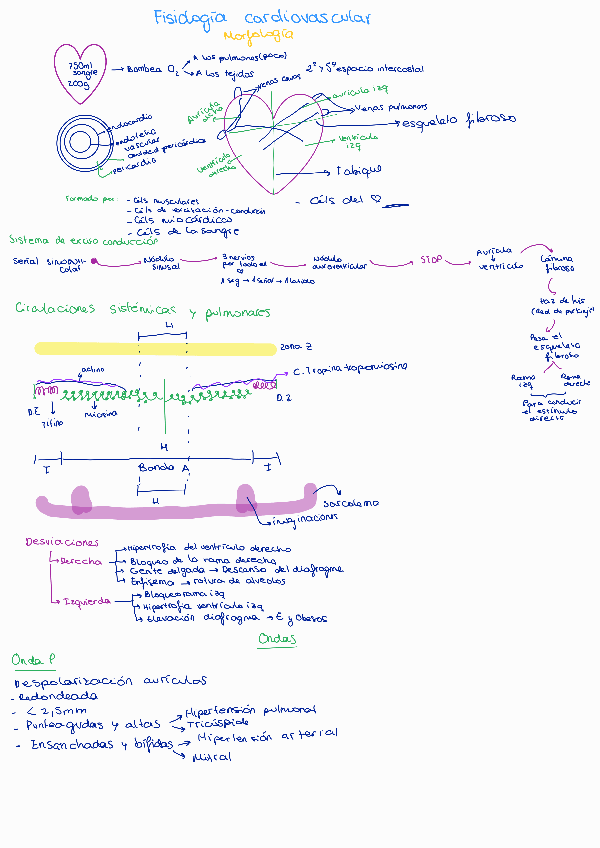 Fisiología cardiovascular
Morfología
750ml
sangre
200g
Bombea O₂
A los pulmones (poco)
A los tejidos
2º y 5º espacio intercostal
Venas cavas
aurícula izq
Aurícula dcha
Venas pulmons
esqueleto fibroso
endocardio
endotelio
vascular
cavidad pericárdica
pericardio
ventrículo
izq
ventrículo
derecho
Tabique
Formado por:
- Céls musculares
- Céls de excitación-conducción
- Céls miocárdicas
- Céls de la sangre
- Céls del ♡
Sistema de excito conducción
Señal
Nódulo
sinusal
3 nervios
por todo el
1 seg → 1 señal → 1 latido
Nódulo
auroventricular
STOP
Aurícula
ventrículo
Lámina
fibrosa
Haz de his
Pasa el
esqueleto
fibroso
Rama
izq
Rama
derecha
Para conducir
el estímulo
directo
Circulaciones sistémicas y pulmonares
H
zona Z
actina
C. Tropina tropomiosina
D.Z
D.Z
titina
miosina
H
I
Banda A
I
H
Sarcolema
invaginaciones
Desviaciones
Derecha
Hipertrofia del ventrículo derecho
Bloqueo de la rama derecha
Gente delgada → Descanso del diafragma
Enfisema → rotura de alveolos
Izquierda
Bloqueo rama izq
Hipertrofia ventrículo izq
Elevación diafragma → E y Obesos
Ondas
Onda P
Despolarización aurículas
- Redondeada
- < 2,5mm
- Puntiagudas y altas
Hipertensión pulmonar
Tricúspide
- Ensanchadas y bífidas
Hipertensión arterial
Mitral